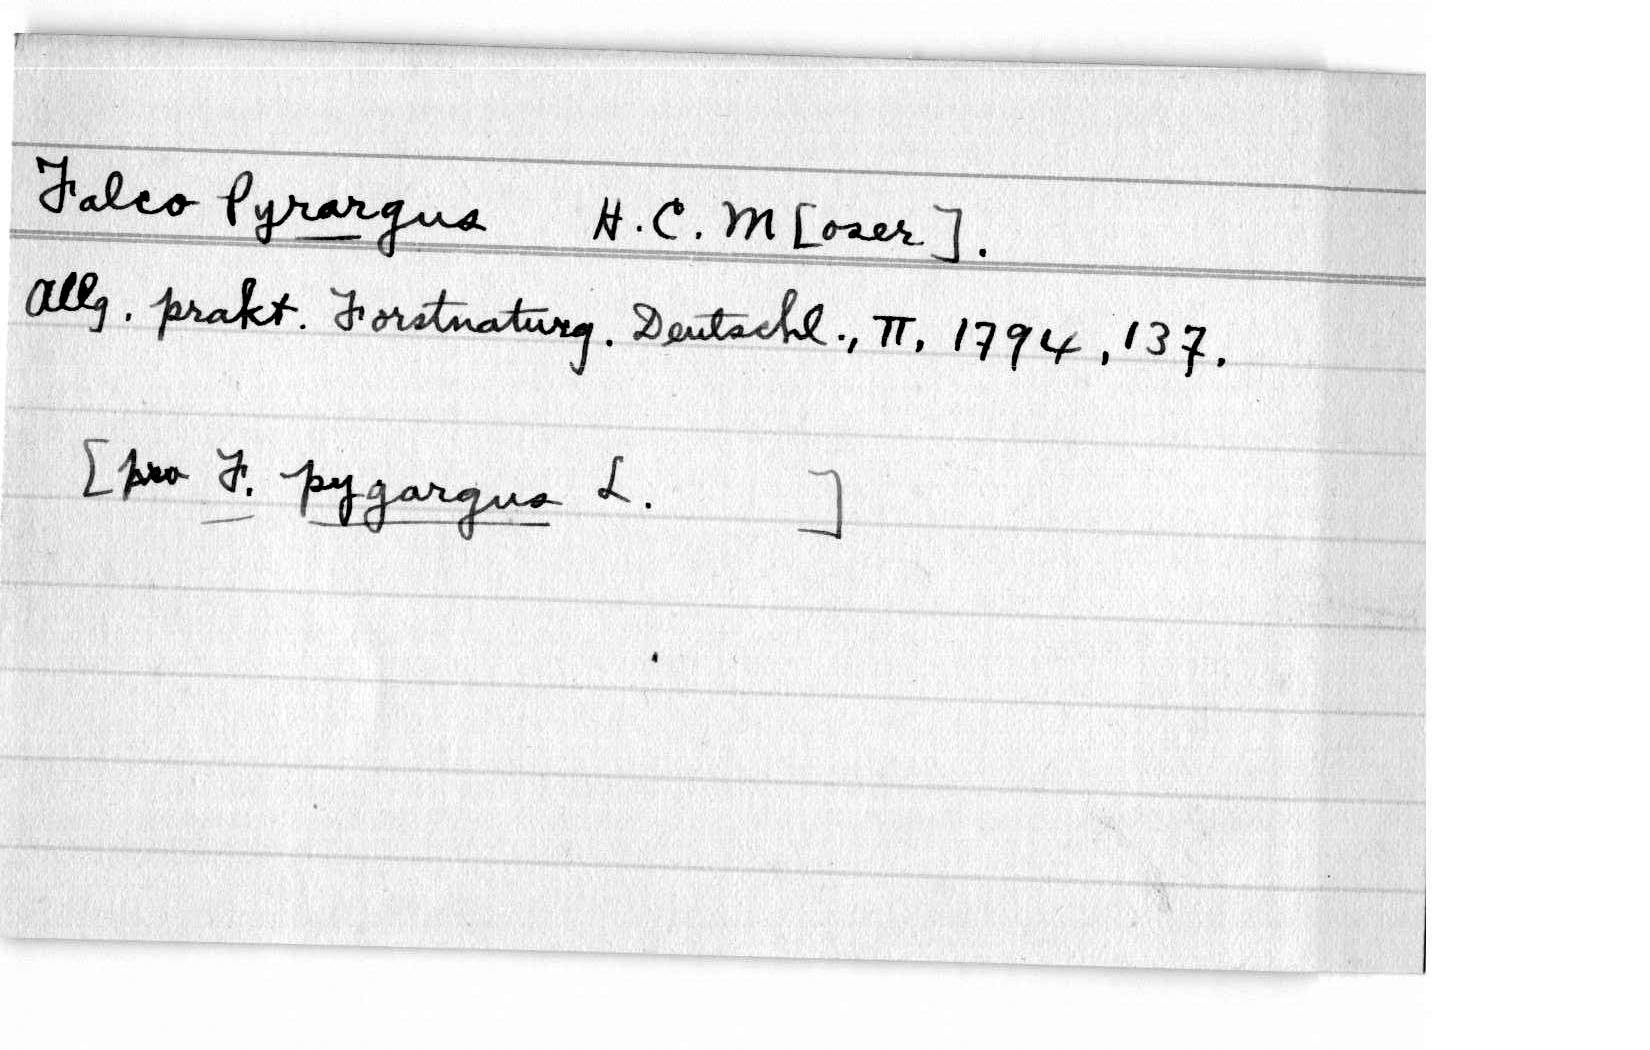 Falco Pyrargus H.C. M[oser].
Allg. prakt. Forstnaturg. Deutschl., II, 1794, 137.
[pro F. pygargus L. ]